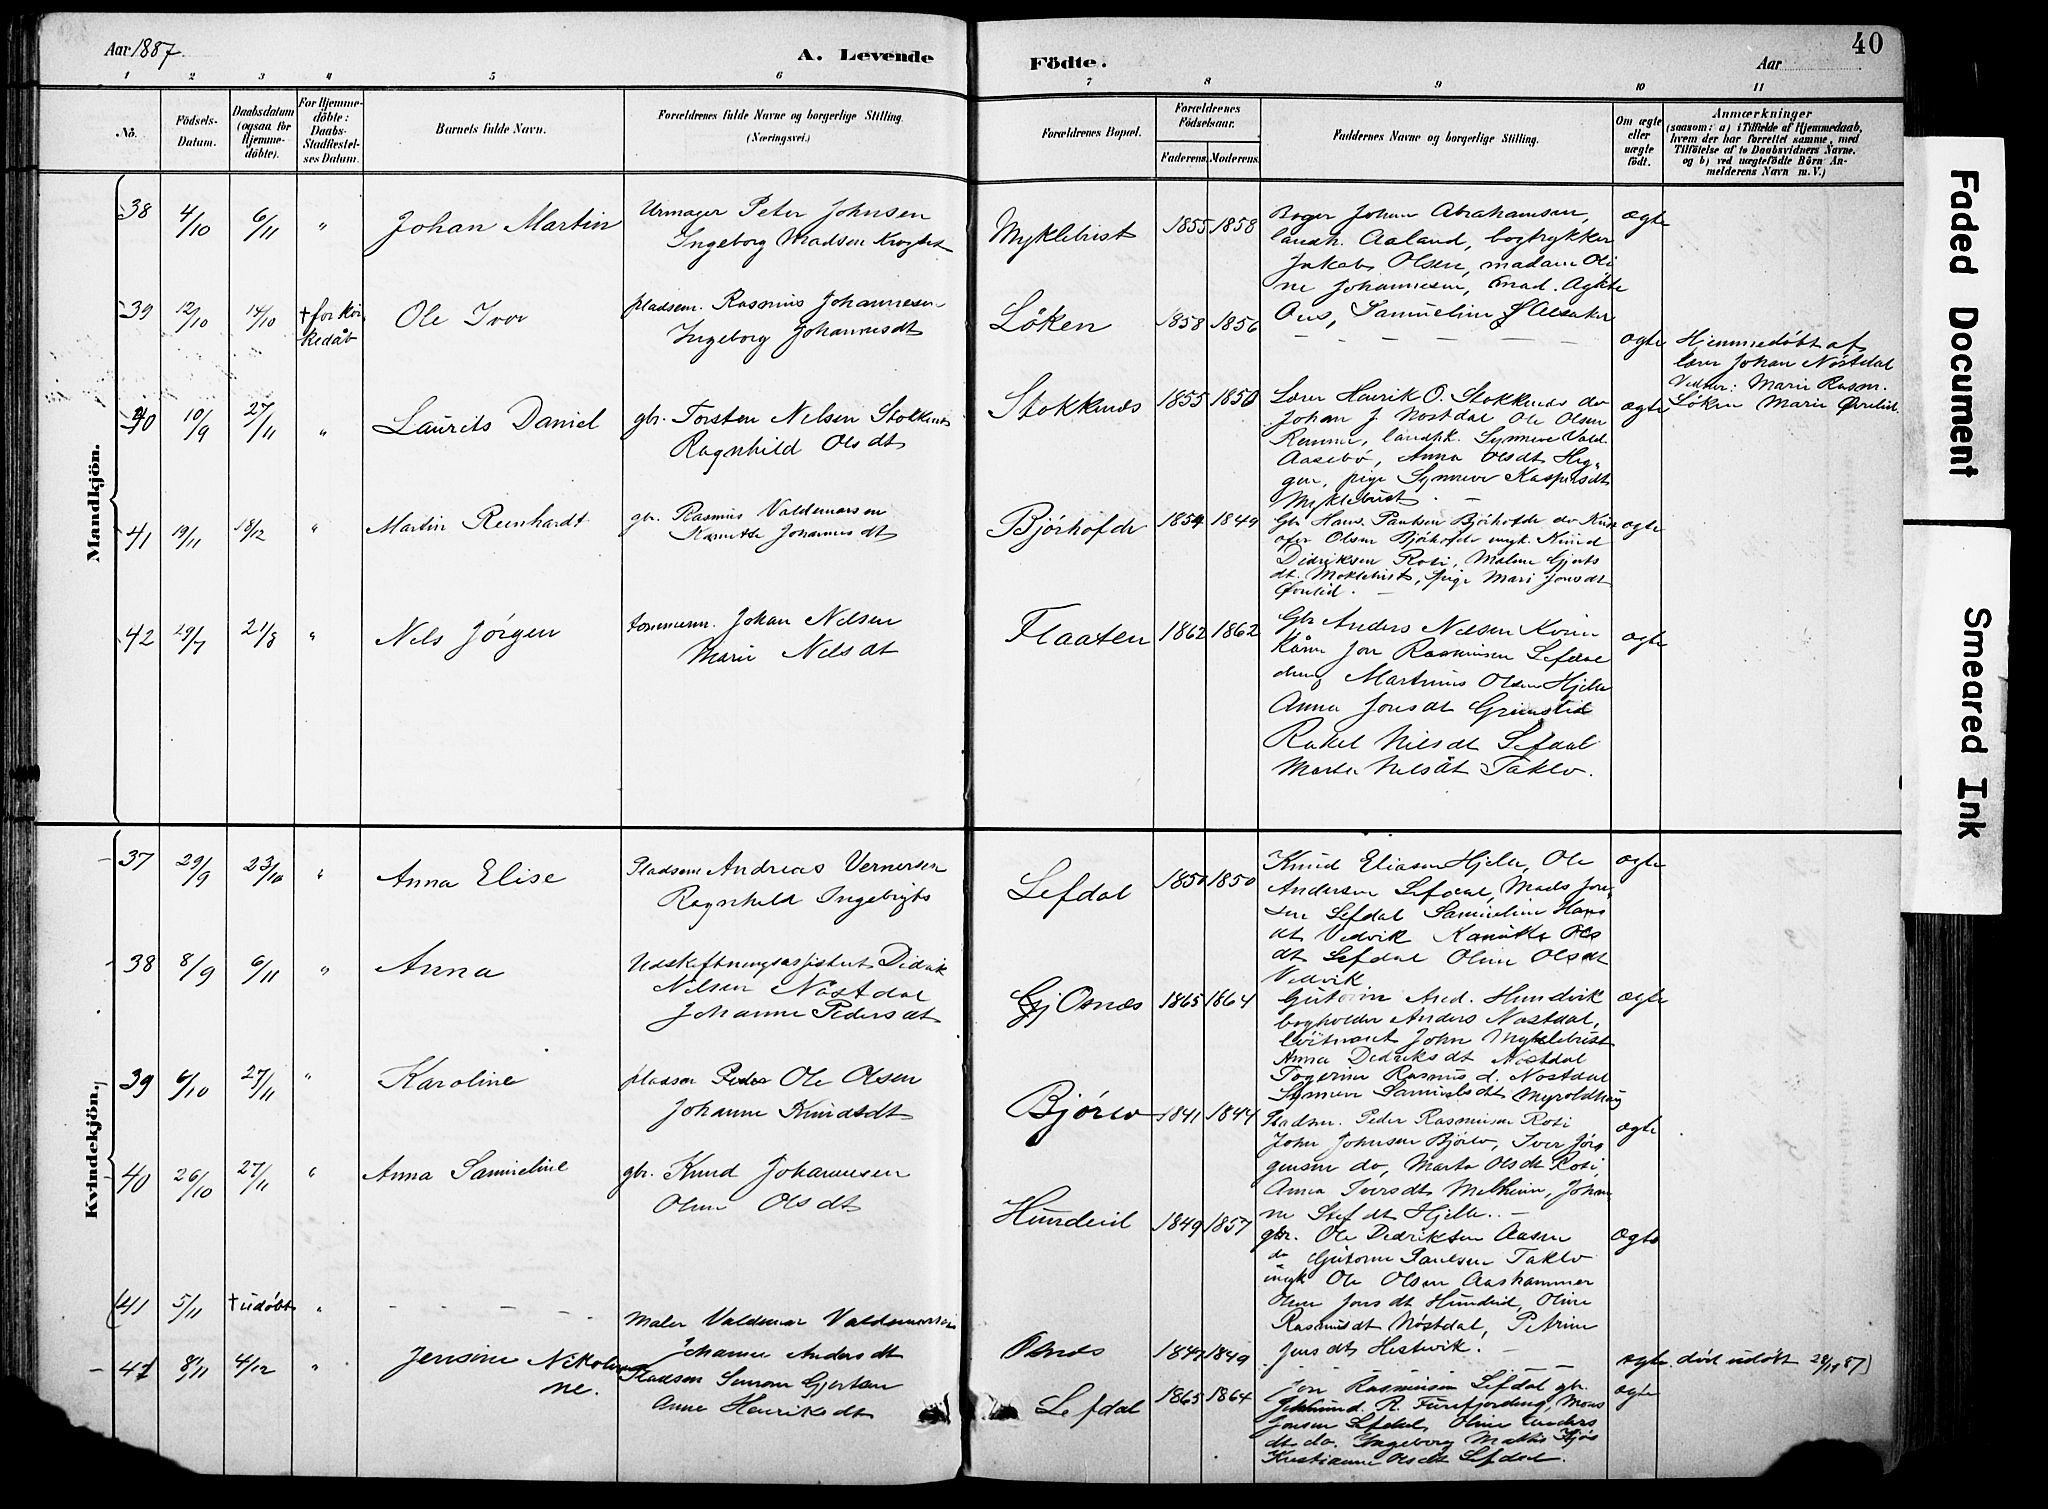 Aar 1887.
A. Levende
Födte.
Aar
40
1 2 3 4 5 6 7 8 9 10 11
No.
Födsels-Datum.
Daabsdatum (ogsaa for Hjemme-döbte).
For Hjemme-döbte: Daabs-Stadfæstel-ses Datum.
Barnets fulde Navn.
Forældrenes fulde Navne og borgerlige Stilling. (Næringsvei.)
Forældrenes Bopæl.
Forældrenes Födselsaar.
Faderens. Moderens.
Faddernes Navne og borgerlige Stilling.
Om ægte eller uægte födt.
Anmærkninger
(saasom: a) i Tilfælde af Hjemmedaab,
hvem der har forrettet samme, med
Tilföielse af to Daabsvidners Navne.
og b) ved uægtefödte Börn An-
melderens Navn m. V.)
Mandkjön.
38 4/10 6/11 " Johan Martin
Urmager Peter Johnsen
Ingeborg Madsen
Myklebust 1855 1858
Johan Abrahamsen,
landh. Aaland, bogtrykker
Jakob Olsen, madam Oli
ne Johannesen,
ægte
39 12/10 14/10 † for kir
kedåb
Ole Ivor
pladsm. Rasmus Johannesen
Ingeborg Johannesdt
Løken 1858 1856
– – – – – –
ægte
Hjemmedøbt af
lærer Johan Nøstdal
Vidner: Marie Rasm.
Løken Marie Ørelid.
40 10/9 27/11 " Laurits Daniel
gbr. Torsten Nelsen Stokkenes
Ragnhild Olsdt
Stokkenes 1855 1850
Lærer Henrik O. Stokkenes do
Johan J. Nostdal Ole Olsen
landhk. Synneve Vald.
Aasebø, Anna Olsdt Heg-
gen, pige Synneve Kaspersdt
Myklebust
ægte
41 19/11 18/12 " Martin Reinhardt
gbr. Rasmus Valdemarsen
Johannesdt
Bjørhofde 1854 1849
Gbr Hans Paulsen Bjørhofde do
Olsen Bjørhofde ungk. Knud
Didriksen Rosi, Malene Gjerts
dt. Myklebust, pige Mari Jonsdt
Ørelid. –
ægte
42 29/7 21/8 " Nels Jörgen
tømmerm. Johan Nelsen
Marie Nelsdt
Flaaten 1862 1862
Gbr Anders Nelsen
Kårm Jon Rasmusen Lefdal
dreng Martinus Olsen Hjelle
Anna Jonsdt Grimstad
Rakel Nilsdt Lefdal
Marta Nelsdt Taklo.
ægte
Kvindekjön.
37 29/9 23/10 " Anna Elise
Pladsm Andreas Vernersen
Ragnhild Ingebrigts
Lefdal 1850 1850
Knud Eliasen Hjelle, Ole
Andersen Lefdal, Mads Jon-
sen Lefdal Samueline Hans
dt Vedvik Ols
dt Lefdal Oline Olsdt
Vedvik
ægte
38 8/9 6/11 " Anna
Udskiftningsassistent Didrik
Nilsen Nøstdal
Johanne Pedersdt
Osnes 1865 1864
Gutorm And. Hundvik
bogholder Anders Nøstdal,
løitnant John Myklebust
Anna Dedriksdt Nøstdal
Rasmus d. Nøstdal
Synneve Samuelsdt Myroldhaug
ægte
39 6/10 27/11 " Karoline
pladsm Ole Olsen
Johanne Knudsdt
Bjørlo 1841 1844
Pladsm. Peder Rasmusen Rosi
John Johnsen Bjørlo, Iver Jör-
gensen do, Marta Olsdt Rosi,
Anna Iversdt Melheim, Johan
ne Stefdt Hjelle. –
ægte
40 26/10 27/11 " Anna Samueline
gbr. Knud Johannesen
Oline Olsdt
Hundeid 1849 1857
gbr. Ole Dedriksen Aasen
do Gutorm Paulsen Taklo
ungk Ole Olsen Aashammer
Oline Jonsdt Hundeid, Oline
Rasmusdt Nøstdal, Petrine
Jensdt Hestvik. –
ægte
(41 5/11 † udøbt " – – – –
Maler Valdemar Valdemarsen
Johanne Andersdt
Osnes 1847 1849
ægte. død udøbt 29/11 87)
41 8/11 4/12 " Jensine Nikolin
ne.
Pladsm Simon Gjertsen
Anne Henriksdt
Lefdal 1865 1864
Jon Rasmusen Lefdal gbr.
R. Furefjording, Mons
Jonsen Lefdal, Oline Anders
dt do, Ingeborg
Kristianne Olsdt Lefdal.
ægte
Faded Document
Smeared Ink